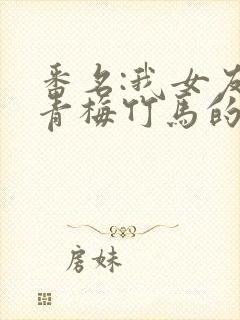 番名:我女友
青梅竹马的
房妹